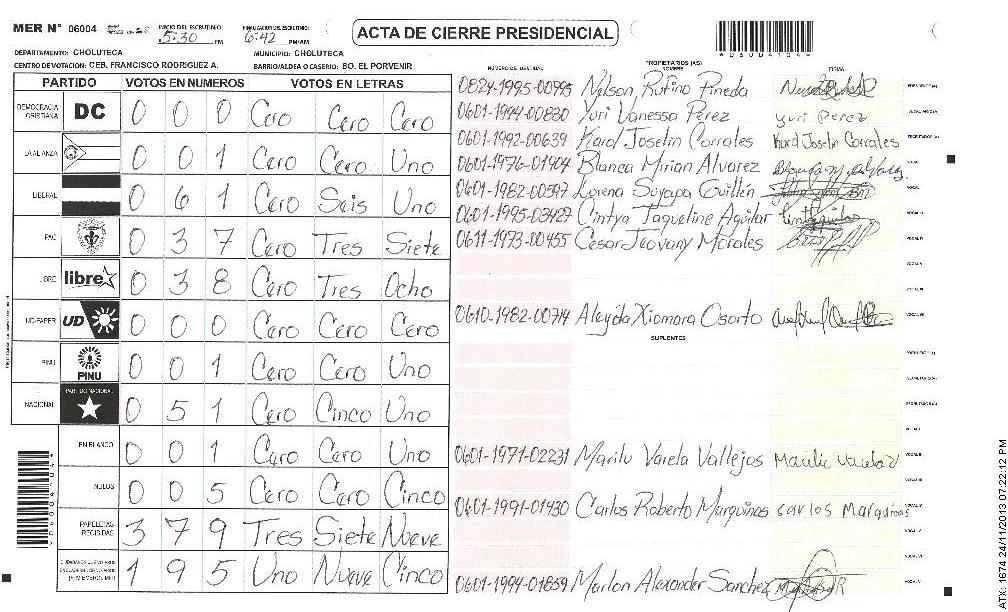 MER N° 06004 INICIO DEL ESCRUTINIO: 5:30 PM FINALIZACION DEL ESCRUTINIO: 6:42 PM/AM
ACTA DE CIERRE PRESIDENCIAL
DEPARTAMENTO: CHOLUTECA MUNICIPIO: CHOLUTECA
CENTRO DE VOTACION: CEB. FRANCISCO RODRIGUEZ A. BARRIO/ALDEA O CASERIO: BO. EL PORVENIR
PARTIDO VOTOS EN NUMEROS VOTOS EN LETRAS
DEMOCRACIA CRISTIANA DC 0 0 0 Cero Cero Cero
LA ALIANZA 0 0 1 Cero Cero Uno
LIBERAL 0 6 1 Cero Seis Uno
PAC 0 3 7 Cero Tres Siete
LIBRE libre 0 3 8 Cero Tres Ocho
UD-FAPER UD 0 0 0 Cero Cero Cero
PINU PINU 0 0 1 Cero Cero Uno
NACIONAL PARTIDO NACIONAL 0 5 1 Cero Cinco Uno
EN BLANCO 0 0 1 Cero Cero Uno
NULOS 0 0 5 Cero Cero Cinco
PAPELETAS RECIBIDAS 3 7 9 Tres Siete Nueve
1 9 5 Uno Nueve Cinco
NUMERO DE IDENTIDAD PROPIETARIOS (AS) NOMBRE FIRMA
0824-1995-00795 Nelson Rufino Pineda
0601-1994-00830 Yuri Vanessa Perez yuri Perez
0601-1992-00639 Karol Joselin Corrales Karol Joselin Corrales
0601-1976-01904 Blanca Mirian Alvarez
0601-1982-00597 Lorena Suyapa Guillén
0601-1995-03427 Cintya Jaqueline Aguilar
0611-1973-00455 Cesar Jeovany Morales
0610-1982-00714 Aleyda Xiomara Osorto
SUPLENTES
0601-1971-02231 Marilu Varela Vallejos
0601-1991-01430 Carlos Roberto Marquinas carlos Marquinas
0601-1994-01859 Marlon Alexander Sanchez
ATX: 1674 24/11/2013 07:22:12 PM